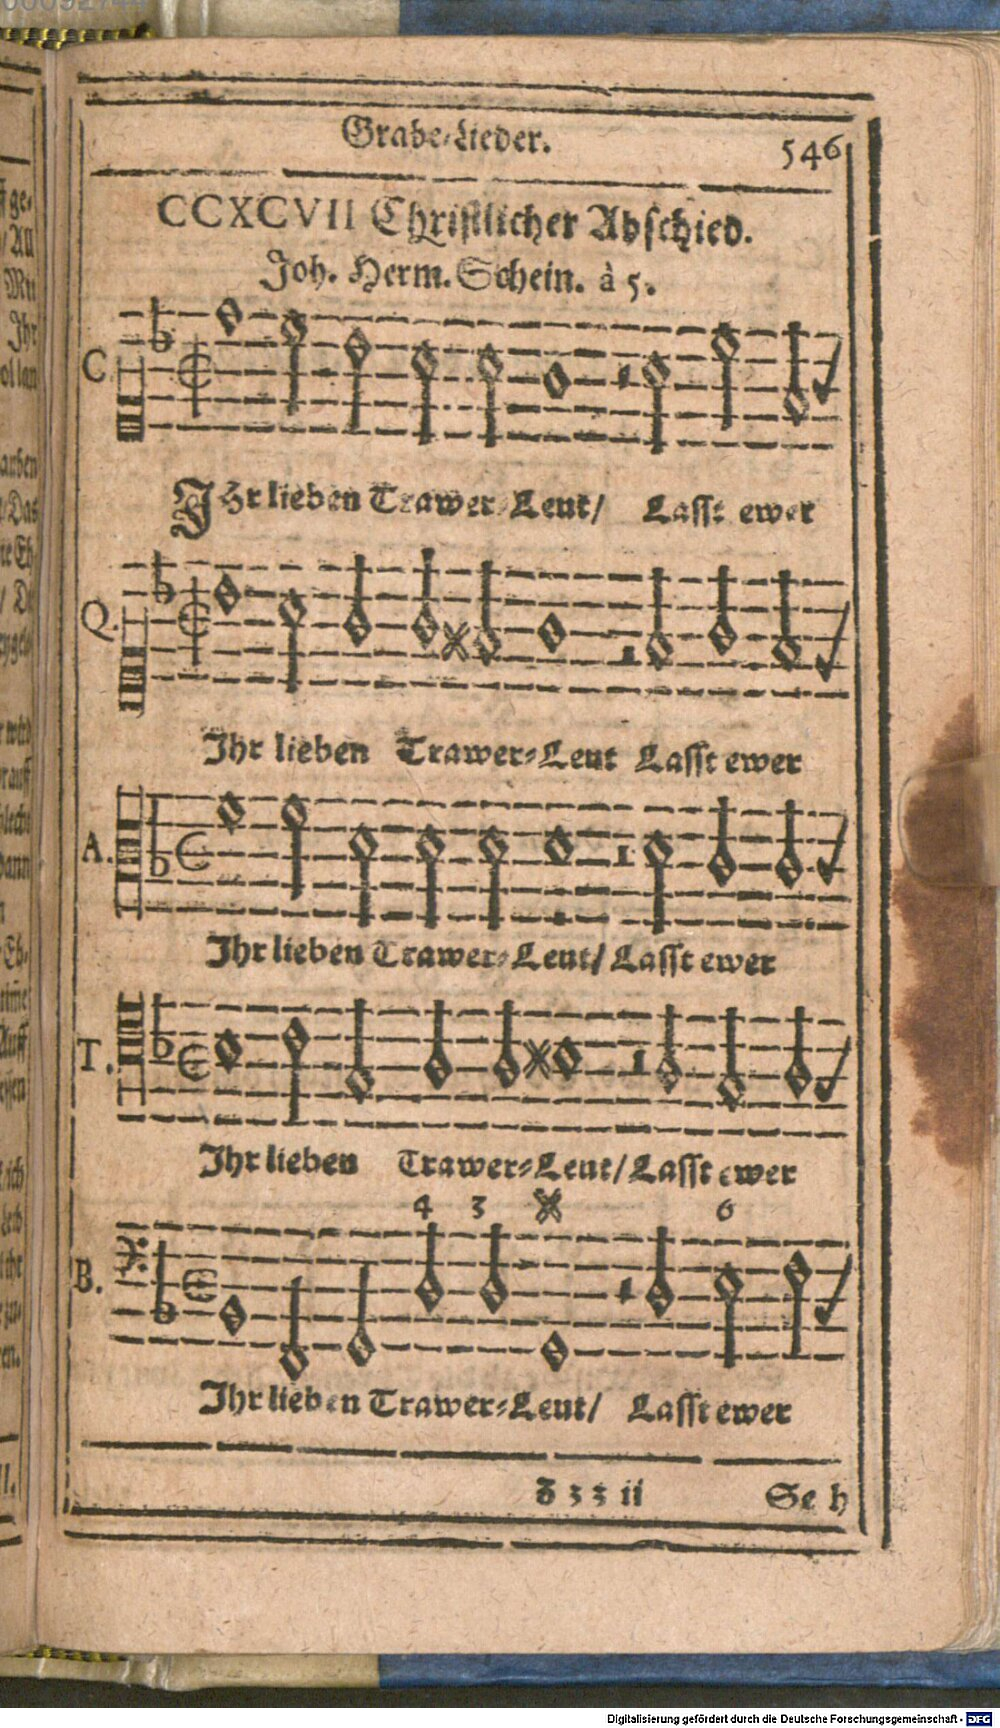 Grabe-Lieder.
546
CCXCVII Christlicher Abschied.
Joh. Herm. Schein. à 5.
C.
IHr lieben Trawer-Leut/ Lasst ewer
Q.
Ihr lieben Trawer-Leut Lasst ewer
A.
Ihr lieben Trawer-Leut/ Lasst ewer
T.
Ihr lieben Trawer-Leut/ Lasst ewer
4 3 6
B.
Ihr lieben Trawer-Leut/ Lasst ewer
Zzz ii
Se h
Digitalisierung gefördert durch die Deutsche Forschungsgemeinschaft - DFG